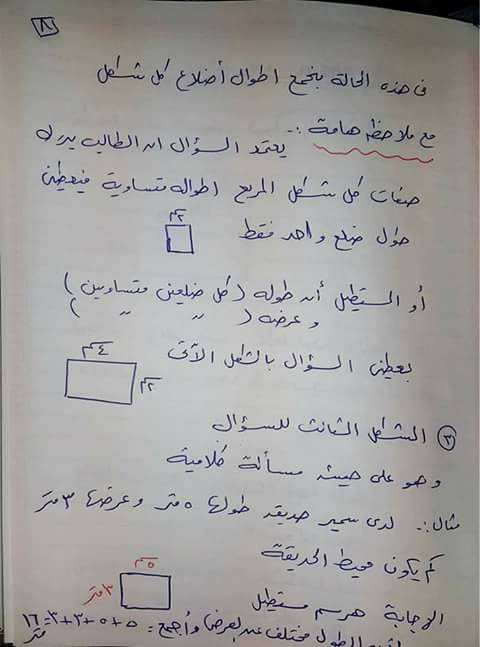 ٨
فى هذه الحالة بنجمع اطوال أضلاع كل شكل
مع ملاحظة هامة :- يعتمد السؤال ان الطالب يدرك
صفات كل شكل المربع اطواله متساوية فيعطينى
طول ضلع واحد فقط
٢م
أو المستطيل أن طوله (كل ضلعين متساويين)
وعرضه ( " " )
يعطينى السؤال بالشكل الآتى
٤م
٢م
٣ الشكل الثالث للسؤال
وهو على هيئة مسألة كلامية
مثال :- لدى سمير حديقه طولها ٥ متر وعرضها ٣ متر
كم يكون محيط الحديقة
٥م
٣ متر
الإجابة هرسم مستطيل
الطول مختلف عن العرض وأجمع = ٥+٥+٣+٣=١٦ متر